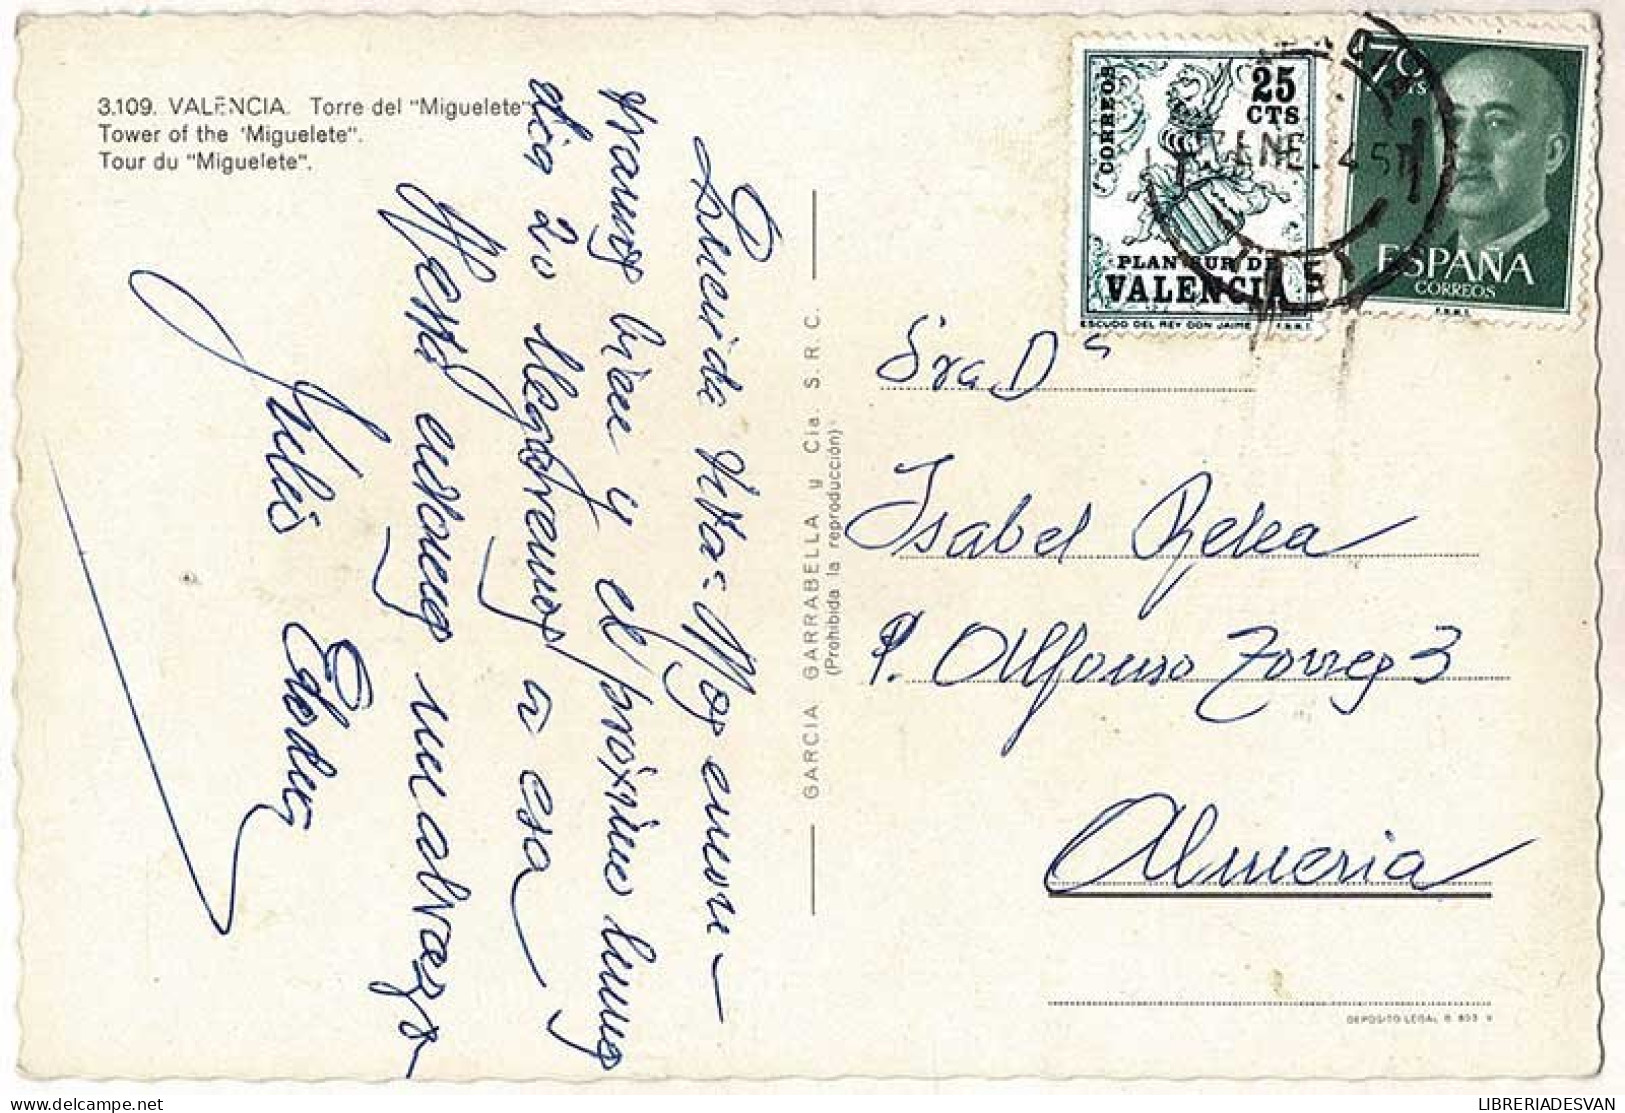 3.109. VALENCIA. Torre del "Miguelete"
Tower of the 'Miguelete".
Tour du "Miguelete".
Querida Nos encon-
tramos bien y el próximo lunes
dia 20 llegaremos a esa
Hasta entonces un abrazo
Julio
GARCIA GARRABELLA y Cía. S.R.C.
(Prohibida la reproducción)
CORREOS
25
CTS
PLAN SUR DE
VALENCIA
ESCUDO DEL REY DON JAIME F.N.M.T.
70
CTS
ESPAÑA
CORREOS
F.N.M.T.
ENE.
Sra D
Isabel Relea
P. Alfonso Torres 3
Almeria
DEPOSITO LEGAL B. 803
delcampe.net
LIBRERIADESVAN